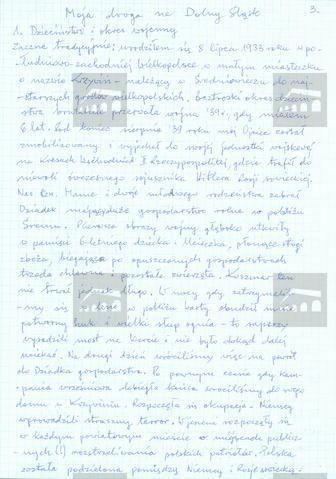 3.
Moja droga na Dolny Śląsk
1. Dzieciństwo i okres wojenny.
Zacznę tradycyjnie: urodziłem się 8 lipca 1933 roku w po-
łudniowo-zachodniej Wielkopolsce w małym miasteczku
o nazwie Krzywiń - należący w Średniowieczu do naj-
starszych grodów wielkopolskich. Beztroski okres dzieciń-
stwa brutalnie przerwała wojna 39r., gdy miałem
6 lat. Pod koniec sierpnia '39 roku mój Ojciec został
zmobilizowany i wyjechał do swojej jednostki wojskowej
na kresach wschodnich II Rzeczypospolitej, gdzie trafił do
niewoli ówczesnego sojusznika Hitlera Rosji sowieckiej.
Nas tzn. Mamę i dwoje młodszego rodzeństwa zabrał
Dziadek mający duże gospodarstwo rolne w pobliżu
Śremu. Pierwsze obrazy wojny głęboko utkwiły
w pamięci 6-letniego dziecka. Ucieczka, płonące stogi
zboża, biegająca po opuszczonych gospodarstwach
trzoda chlewna i pozostałe zwierzęta. Koszmar ten
nie trwał jednak długo. W nocy gdy zatrzymaliś-
my się w pobliżu Warty obudził mnie
potworny huk i wielki słup ognia - to saperzy
wysadzili most na Warcie i nie było dokąd dalej
uciekać. Na drugi dzień wróciliśmy więc na powrót
do Dziadka gospodarstwa. Po pewnym czasie gdy kam-
pania wrześniowa dobiegła końca wróciliśmy do swego
domu w Krzywiniu. Rozpoczęła się okupacja. Niemcy
wprowadzili straszny terror. Wojenne rozpoczęły się
w każdym powiatowym mieście w miejscach publicz-
nych (!) rozstrzeliwania polskich patriotów. Polska
została podzielona pomiędzy Niemcy i Rosję sowiecką.